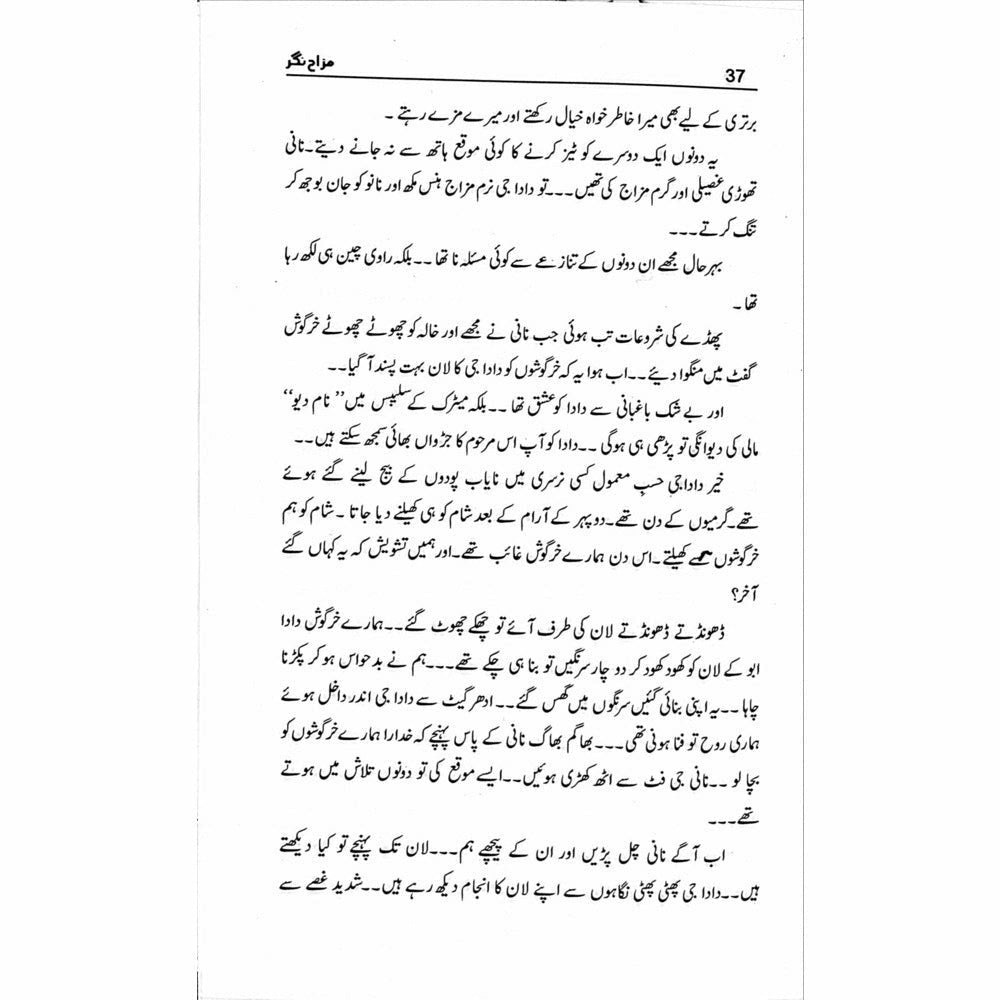 مزاح نگر
37
برتری کے لیے بھی میرا خاطر خواہ خیال رکھتے اور میرے مزے رہتے ۔
یہ دونوں ایک دوسرے کو ٹیز کرنے کا کوئی موقع ہاتھ سے نہ جانے دیتے۔نانی
تھوڑی غصیلی اور گرم مزاج کی تھیں۔۔۔تو دادا جی نرم مزاج ہنس مکھ اور نانو کو جان بوجھ کر
تنگ کرتے۔۔۔
بہرحال مجھے ان دونوں کے تنازعے سے کوئی مسئلہ نا تھا ۔۔بلکہ راوی چین ہی لکھ رہا
تھا ۔
پھڈے کی شروعات تب ہوئی جب نانی نے مجھے اور خالہ کو چھوٹے چھوٹے خرگوش
گفٹ میں منگوا دیئے ۔۔اب ہوا یہ کہ خرگوشوں کو دادا جی کا لان بہت پسند آ گیا۔۔
اور بے شک باغبانی سے دادا کو عشق تھا ۔۔بلکہ میٹرک کے سلیبس میں ‘‘نام دیو’’
مالی کی دیوانگی تو پڑھی ہی ہوگی ۔۔دادا کو آپ اس مرحوم کا جڑواں بھائی سمجھ سکتے ہیں۔۔
خیر دادا جی حسبِ معمول کسی نرسری میں نایاب پودوں کے بیج لینے گئے ہوئے
تھے۔گرمیوں کے دن تھے۔دوپہر کے آرام کے بعد شام کو ہی کھیلنے دیا جاتا ۔شام کو ہم
خرگوشوں سے کھیلتے۔اس دن ہمارے خرگوش غائب تھے۔اور ہمیں تشویش کہ یہ کہاں گئے
آخر؟
ڈھونڈتے ڈھونڈتے لان کی طرف آئے تو چھکے چھوٹ گئے۔۔ہمارے خرگوش دادا
ابو کے لان کو کھود کھود کر دو چار سرنگیں تو بنا ہی چکے تھے۔۔۔ہم نے بدحواس ہو کر پکڑنا
چاہا ۔۔یہ اپنی بنائی گئیں سرنگوں میں گھس گئے۔۔ ادھر گیٹ سے دادا جی اندر داخل ہوئے
ہماری روح تو فنا ہونی تھی۔۔۔بھاگم بھاگ نانی کے پاس پہنچے کہ خدارا ہمارے خرگوشوں کو
بچا لو ۔۔نانی جی فٹ سے اٹھ کھڑی ہوئیں۔۔ایسے موقع کی تو دونوں تلاش میں ہوتے
تھے۔۔۔
اب آگے نانی چل پڑیں اور ان کے پیچھے ہم۔۔۔لان تک پہنچے تو کیا دیکھتے
ہیں۔۔دادا جی پھٹی پھٹی نگاہوں سے اپنے لان کا انجام دیکھ رہے ہیں۔۔شدید غصے سے